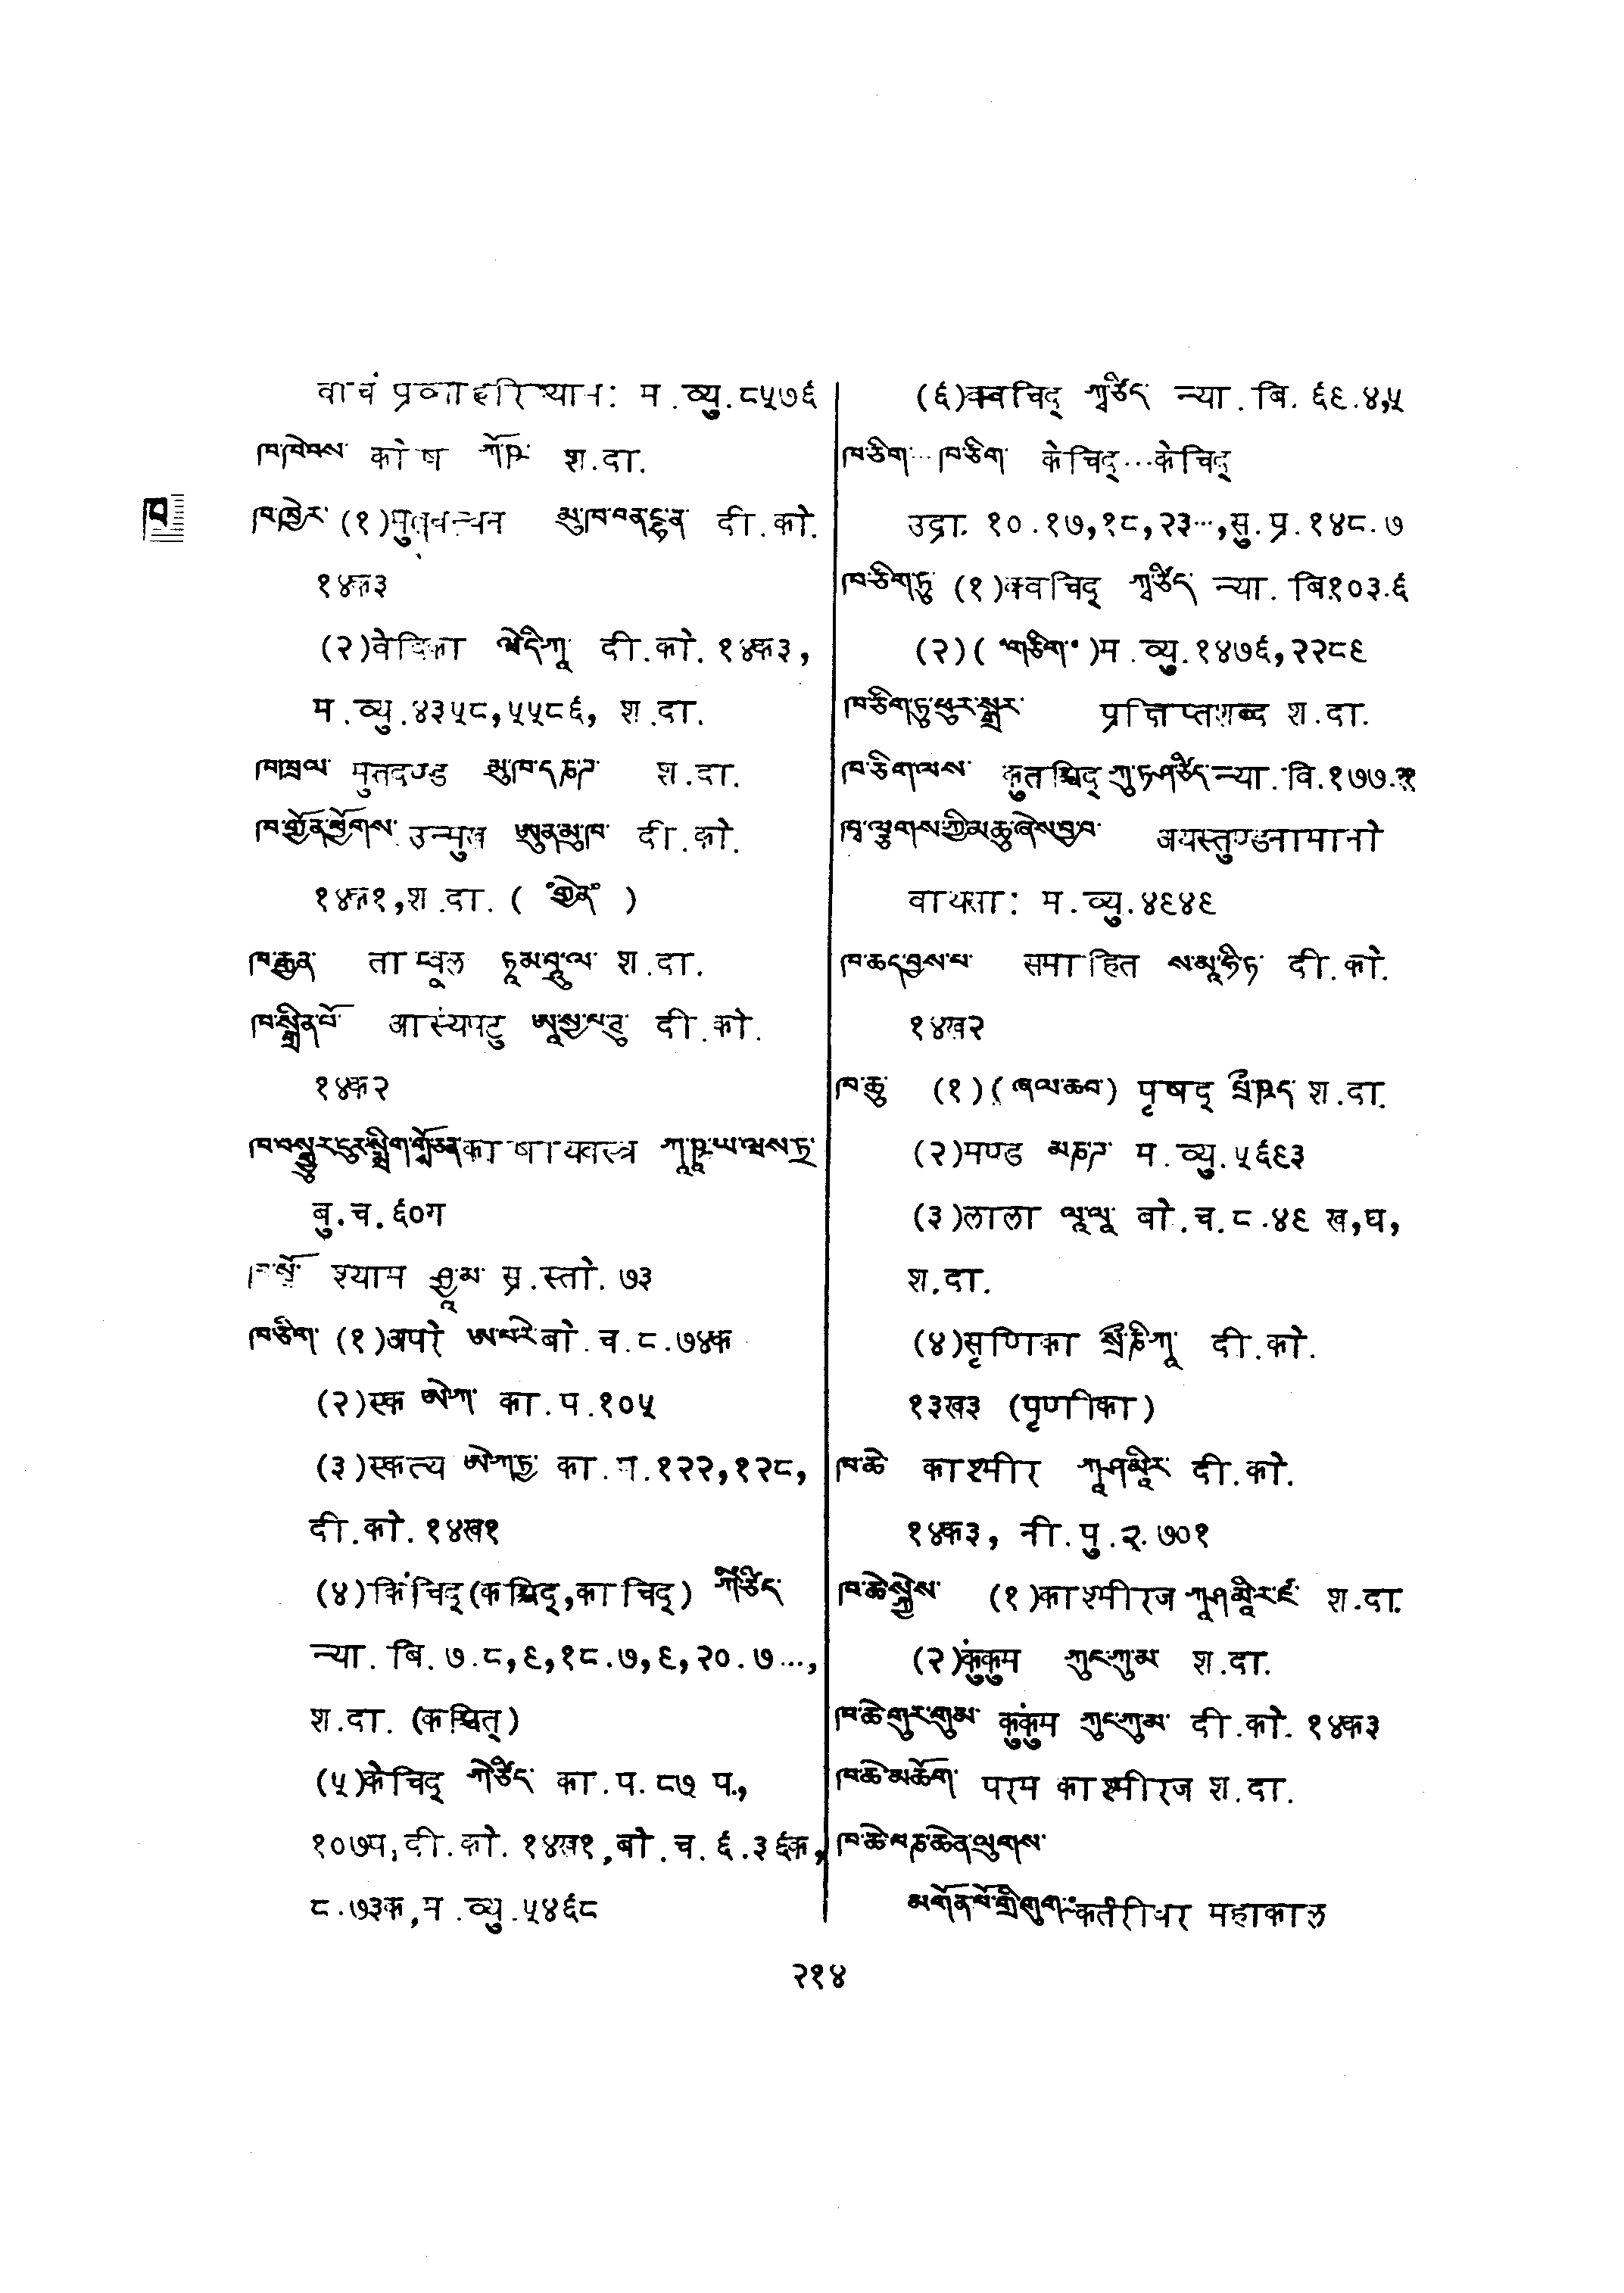 वाचं प्रव्याहरिष्यामः म.व्यु.८५७६
ཁ་ཁེབས་ कोष ཀོཥ་ श.दा.
ཁ
ཁ་ཁྱེར་ (१) མུ་ཁ་བན་དྷ་ན་ दी.को.
१४क३
(२)वेदिका བེ་དི་ཀཱ दी.को. १४क३,
म.व्यु.४३५८,५५८६, श.दा.
ཁ་ཁྲལ་ མུ་ཁ་དཎྜ་ श.दा.
ཁ་གྱེན་ཕྱོགས་ उन्मुख ཨུན་མུ་ཁ་ दी.को.
१४क१,श.दा. ( ་གྱེན་ )
ཁ་རྒྱན་ ताम्बूल ཏཱམ་བཱུ་ལ་ श.दा.
ཁ་སྒྲིན་པོ་ आस्यपटु ཨཱ་སྱ་པ་ཊུ་ दी.को.
१४क२
ཁ་བསྒྱུར་ངུར་སྨྲིག་གྱོན་ काषायवस्त्र ཀཱ་ཥཱ་ཡ་ཝས་ཏྲ་
बु.च.६०ग
ཁ་སྔོ་ श्याम ཤྱཱ་མ་ स्र.स्तो. ७३
ཁ་ཅིག་ (१)अपरे ཨ་པ་རེ་ बो.च.८.७४क
(२)एक ཨེ་ཀ་ का.प.१०५
(३)एकत्य ཨེ་ཀ་ཏྱ་ का.प.१२२,१२८,
दी.को.१४ख१
(४)किंचिद्(कश्चिद्,काचिद्) ཀིཾ་ཙིད་
न्या.बि.७.८,९,१८.७,९,२०.७…,
श.दा. (कश्चित्)
(५)केचिद् ཀེ་ཙིད་ का.प.८७ प.,
१०७प,दी.को.१४ख१,बो.च.६.३६क,
८.७३क,म.व्यु.५४६८
(६)क्वचिद् ཀྭ་ཙིད་ न्या.बि.६९.४,५
ཁ་ཅིག་…ཁ་ཅིག་ केचिद्…केचिद्
उद्रा. १०.१७,१८,२३…,सु.प्र.१४८.७
ཁ་ཅིག་ཏུ (१)क्वचिद् ཀྭ་ཙིད་ न्या.बि.१०३.६
(२)( ་གཅིག་ )म.व्यु.१४७६,२२८९
ཁ་ཅིག་ཏུ་ཕུར་སྒྲར་ प्रक्षिप्तशब्द श.दा.
ཁ་ཅིག་ལས་ कुतश्चिद् ཀུ་ཏ་ཤྩིད་ न्या.बि.१७७.
ཁྭ་ལྕགས་ཀྱི་མཆུ་ཞེས་བྱ་བ་ अयस्तुण्डनामानो
वायसाः म.व्यु.४९४९
ཁ་ཆད་བྱས་པ་ समाहित ས་མཱ་ཧི་ཏ་ दी.को.
१४ख२
ཁ་ཆུ (१)(ཞལ་ཆབ་) पृषद् པྲྀ་ཥད་ श.दा.
(२)मण्ड མཎྜ་ म.व्यु.५६९३
(३)लाला ལཱ་ལཱ बो.च.८.४९ ख,घ,
श.दा.
(४)सृणिका སྲྀ་ཎི་ཀཱ दी.को.
१३ख३ (पृणीका)
ཁ་ཆེ काश्मीर ཀཱ་ཤ་མཱིར་ दी.को.
१४क३, नी.पु.२.७०१
ཁ་ཆེ་སྐྱེས་ (१)काश्मीरज ཀཱ་ཤ་མཱི་ར་ཛ་ श.दा.
(२)कुंकुम ཀུང་ཀུ་མ श.दा.
ཁ་ཆེ་གུར་གུམ་ कुकुंम ཀུང་ཀུ་མ་ दी.को. १४क३
ཁ་ཆེ་མཆོག་ परम काश्मीरज श.दा.
ཁ་ཆེ་པཎ་ཆེན་ལུགས་
མགོན་པོ་གྲི་གུག་ कर्तरीधर महाकाल
२१४